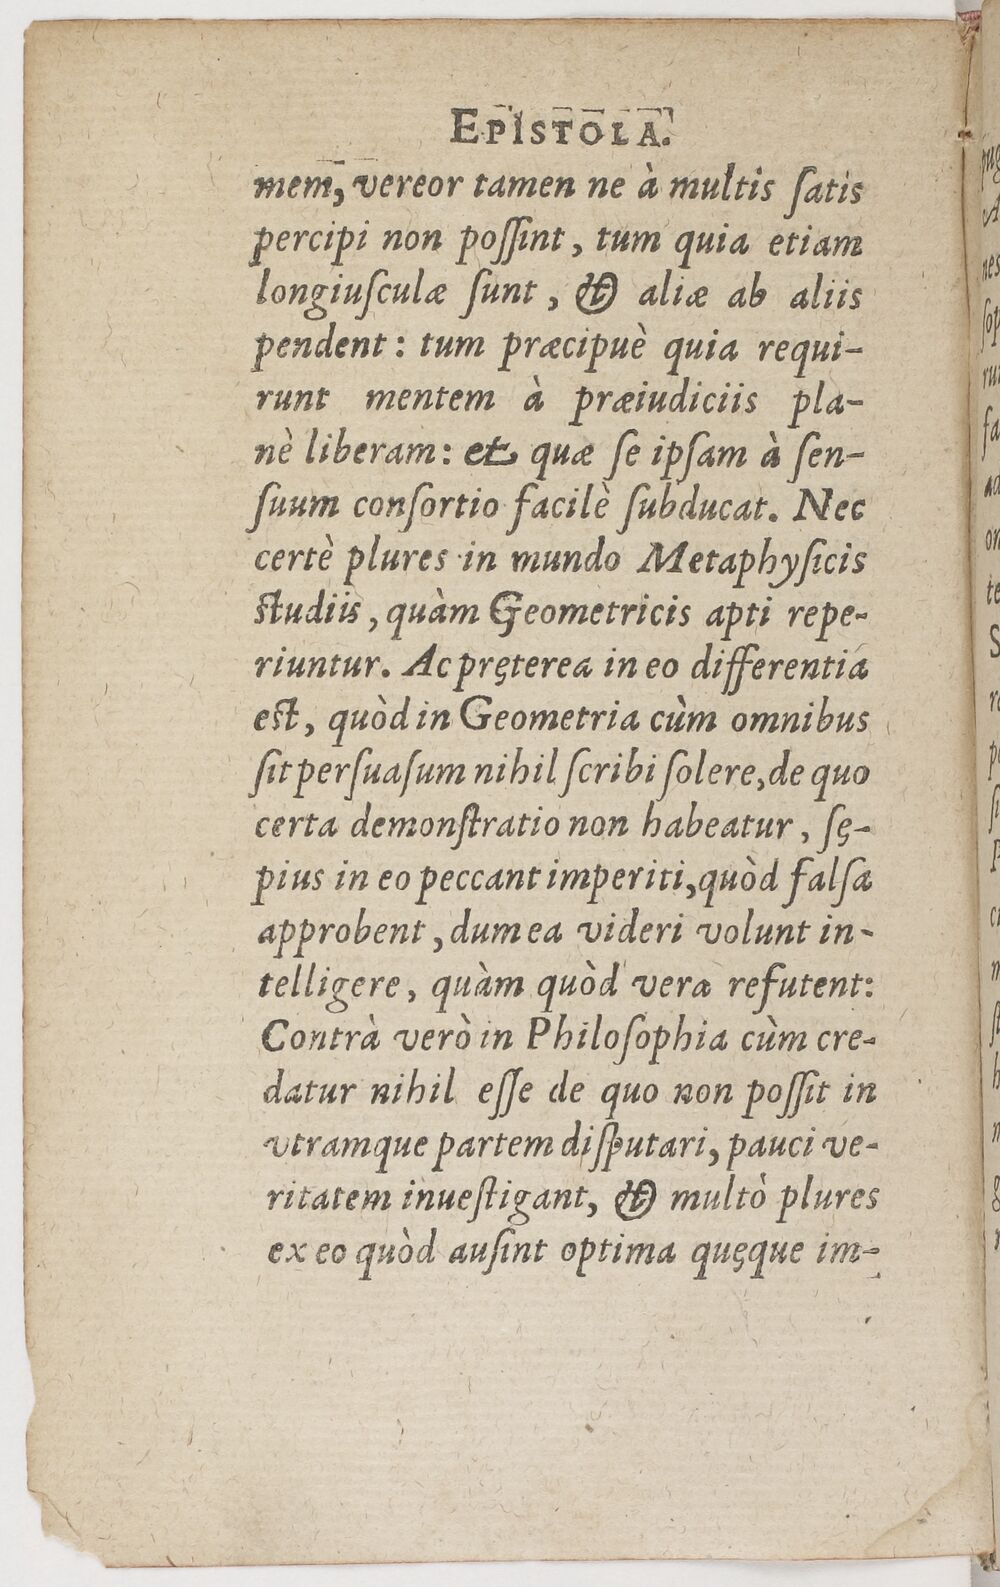 EPISTOLA.
mem, vereor tamen ne à multis ſatis
percipi non poſſint, tum quia etiam
longiuſculæ ſunt, & aliæ ab aliis
pendent: tum præcipuè quia requi-
runt mentem à præiudiciis pla-
nè liberam: et quæ ſe ipſam à ſen-
ſuum conſortio facilè ſubducat. Nec
certè plures in mundo Metaphyſicis
ſtudiis, quàm Geometricis apti repe-
riuntur. Ac pręterea in eo differentia
eſt, quòd in Geometria cùm omnibus
ſit perſuaſum nihil ſcribi ſolere, de quo
certa demonſtratio non habeatur, ſę-
pius in eo peccant imperiti, quòd falſa
approbent, dum ea videri volunt in-
telligere, quàm quòd vera refutent:
Contrà verò in Philoſophia cùm cre-
datur nihil eſſe de quo non poſſit in
vtramque partem diſputari, pauci ve-
ritatem inueſtigant, & multò plures
ex eo quòd auſint optima quęque im-